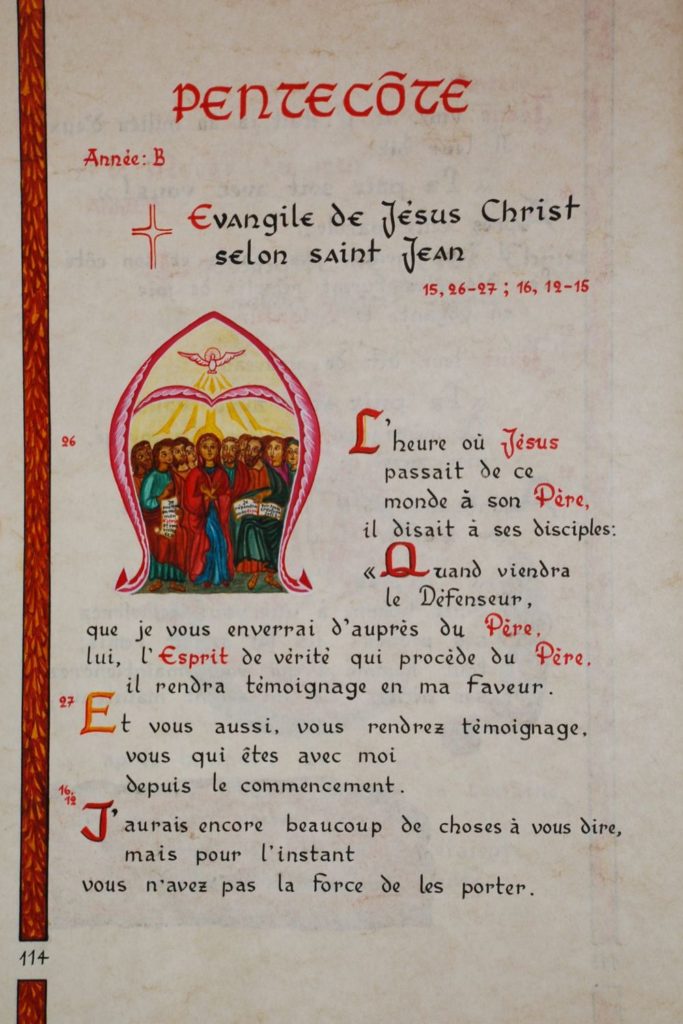 PENTECÕTE
Année: B
Evangile de Jésus Christ
selon saint Jean
15, 26-27 ; 16, 12-15
26
L'heure où Jésus
passait de ce
monde à son Père,
il disait à ses disciples:
«Quand viendra
le Défenseur,
que je vous enverrai d'auprès du Père,
lui, l'Esprit de vérité qui procède du Père,
il rendra témoignage en ma faveur.
27
Et vous aussi, vous rendrez témoignage,
vous qui êtes avec moi
depuis le commencement.
16,
12
J'aurais encore beaucoup de choses à vous dire,
mais pour l'instant
vous n'avez pas la force de les porter.
114